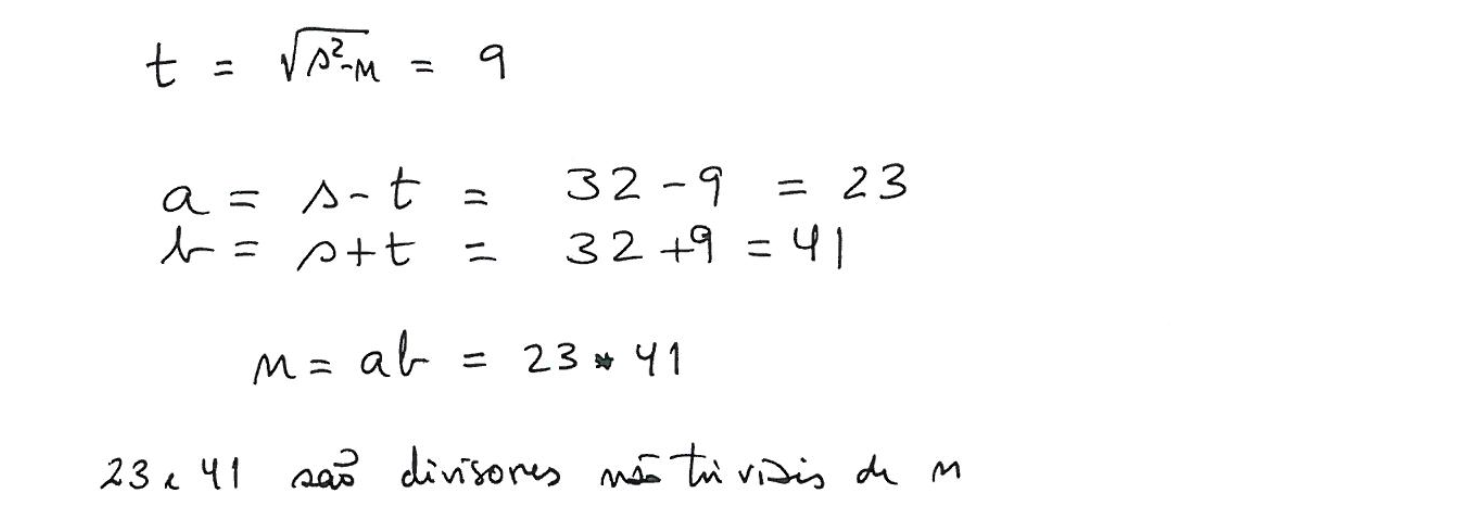 t = √(s²-n) = 9
a = s-t = 32-9 = 23
b = s+t = 32+9 = 41
n = ab = 23 * 41
23 e 41 são divisores não triviais de n